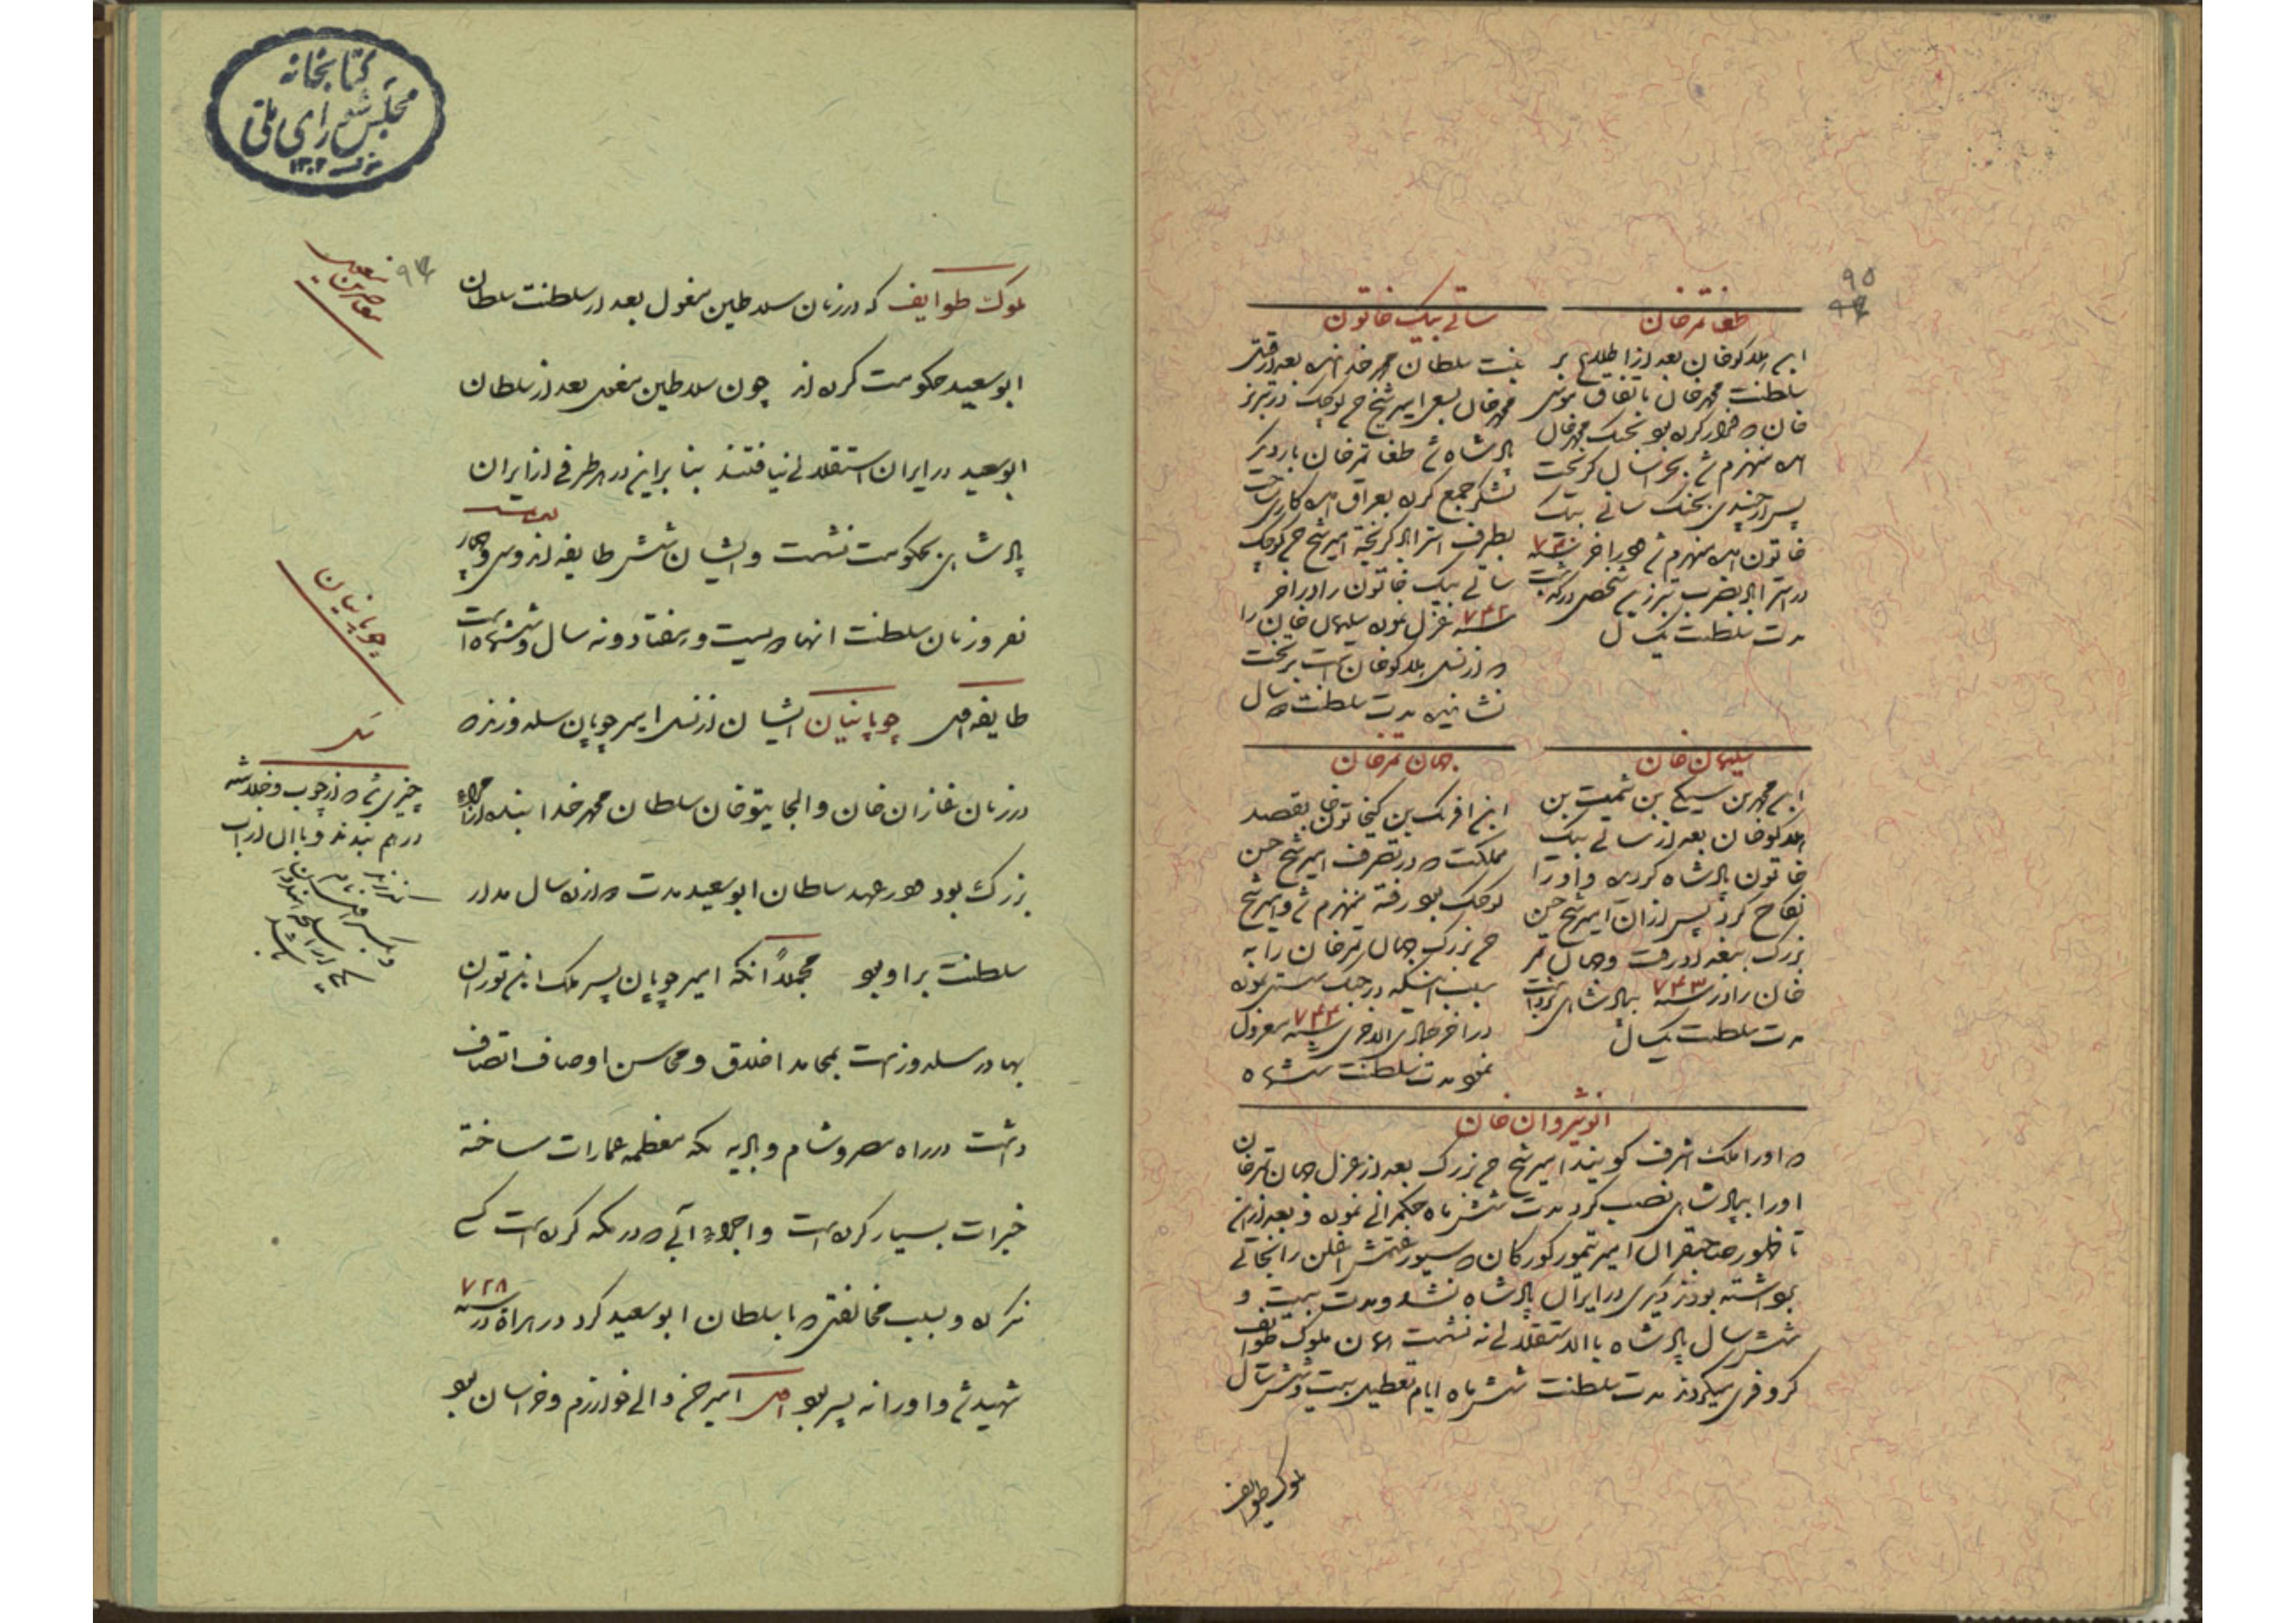 ۹۵
طغا تمرخان
ابن هلاکوخان بعد از اطلاع بر
سلطنت محمدخان باتفاق موسی
خان که فرار کرده بود بجنک محمدخان
آمده منهزم شد بخراسان کریخت
پس از چندی بجنک ساتی بیک
خاتون آمده منهزم شد و در اخر سنه
در استراباد بضرب تبرزین شخصی درکذشت
مدت سلطنت یکسال
ساتی بیک خاتون
بنت سلطان محمد خدابنده بعد از قتل
محمدخان بسعی امیر شیخ حسن کوچک در تبریز
پادشاه شد طغا تمرخان بار دیکر
لشکر جمع کرده بعراق آمده کاری نساخت
بطرف استراباد کریخته امیر شیخ حسن کوچک
ساتی بیک خاتون را در اخر
سنه ۷۴۲ عزل نموده سلیمان خان را
که از نسل هلاکوخان است بر تخت
نشانیده مدت سلطنت سال
سلیمان خان
ابن محمد بن سیکی بن شمیت بن
هلاکوخان بعد از ساتی بیک
خاتون پادشاه کردیده و او را
نکاح کرد پس از آن امیر شیخ حسن
بزرک ببغداد رفت و جهان تمر
خان را در سنه ۷۴۳ بپادشاهی برداشت
مدت سلطنت یکسال
جهان تمرخان
ابن افرنک بن کیخاتوخان بقصد
مملکت که در تصرف امیر شیخ حسن
کوچک بود رفته منهزم شد و امیر شیخ
حسن بزرک جهان تمرخان را به
سبب اینکه در جنک سستی نموده
در اخر جمادی الاخری سنه ۷۴۴ معزول
نمود مدت سلطنت ششماه
انوشیروان خان
که او را ملک اشرف کویند امیر شیخ حسن بزرک بعد از عزل جهان تمرخان
او را بپادشاهی نصب کرد مدت شش ماه حکمرانی نموده و بعد از این
تا ظهور صاحبقران امیر تیمور کورکان که سیورغتمش اغلن را بخانی
برداشته بودند دیکری در ایران پادشاه نشد و مدت بیست و
شش سال پادشاه بالاستقلالی نه نشست ملوک طوایف
کروفری میکردند مدت سلطنت شش ماه ایام تعطیل بیست و شش سال
ملوک طوایف
کتابخانه
مجلس شورای ملی
۱۳۰۲
۹۴
معاصرین
ملوک طوایف که در زمان سلاطین مغول بعد از سلطنت سلطان
ابوسعید حکومت کرده اند چون سلاطین مغول بعد از سلطان
ابوسعید در ایران استقلالی نیافتند بنا براین در هر طرفی از ایران
پادشاهی بحکومت نشست و ایشان شش طایفه اند و سی و چهار
نفر و زمان سلطنت انها دویست و هفتاد و نه سال و ششماه است
چوپانیان
طایفه اول چوپانیان ایشان از نسل امیر چوپان سلدوزند که
در زمان غازان خان و الجایتو خان سلطان محمد خدابنده از امراء
بزرک بود و در عهد سلطان ابوسعید مدت دوازده سال مدار
سلطنت بر او بود مجملاً آنکه امیر چوپان پسر ملک ابن تودان
بهادر سلدوز است بمحامد اخلاق و محاسن اوصاف اتصاف
داشت در راه مصر و شام و بادیه مکه معظمه عمارات ساخته
خیرات بسیار کرده است و اجراء آبی که در مکه کرده است کسی
نکرده و بسبب مخالفتی که با سلطان ابوسعید کرد در هراة در سنه ۷۲۸
شهید شد و او را نه پسر بود اول امیر حسن والی خوارزم و خراسان بود
چیزی که از چوب و
درهم بندند و با آن از آب